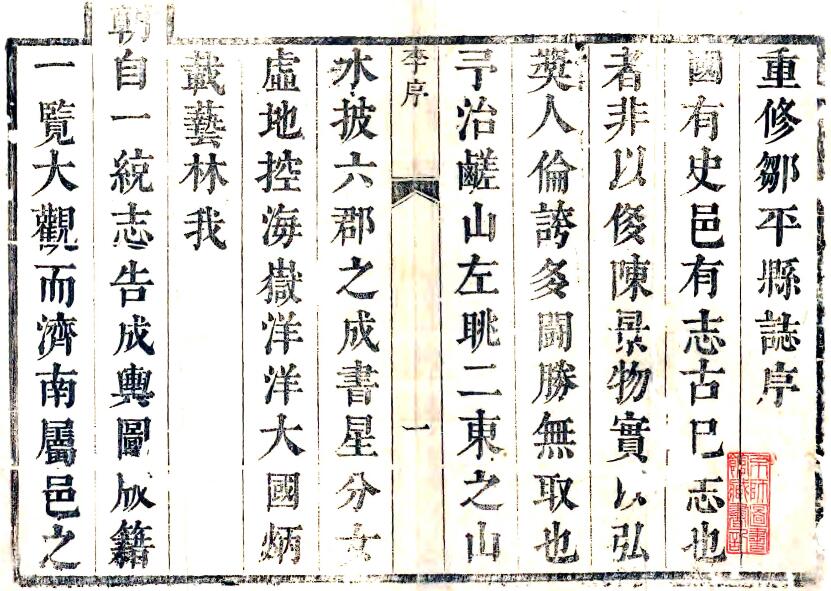 重修鄒平縣誌序
國有史邑有志古巳志也
者非以侈陳景物實以弘
獎人倫誇多鬭勝無取也
予治鹺山左眺二東之山
李序 一
水披六郡之成書星分女
虛地控海嶽洋洋大國炳
載藝林我
朝自一統志告成輿圖版籍
一覽大觀而濟南屬邑之
京師圖書
館藏書記